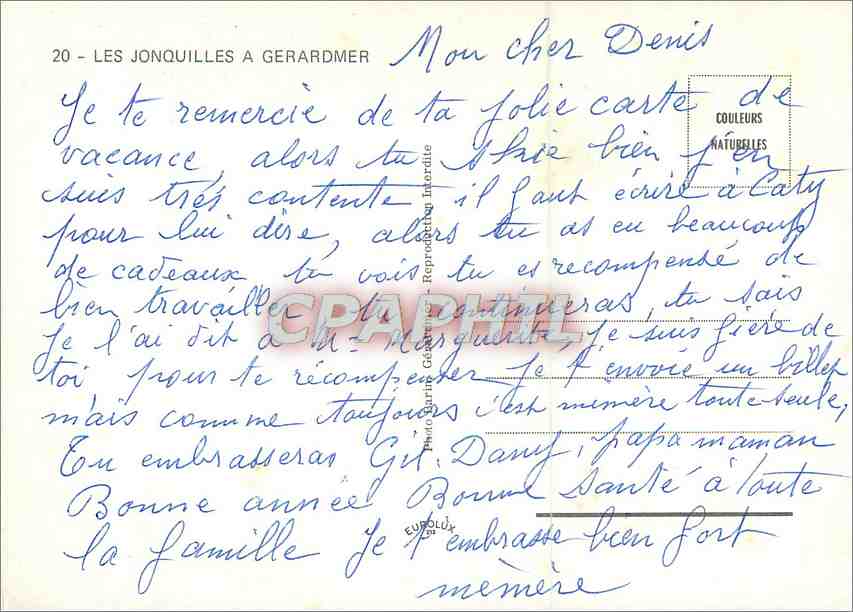 20 - LES JONQUILLES A GERARDMER
Mon cher Denis
Je te remercie de ta jolie carte de
COULEURS
NATURELLES
vacance, alors tu skie bien j'en
suis très contente il faut écrire à Caty
pour lui dire, alors tu as eu beaucoup
de cadeaux tu vois tu es recompensé de
bien travailler tu continueras, tu sais
Je l'ai dit à Mme Marguerite, je suis fière de
toi pour te récompenser Je t'envoie un billet
mais comme toujours c'est mémère toute seule,
Tu embrasseras Gil. Dany, papa maman
Bonne année Bonne santé à toute
la famille Je t'embrasse bien fort
mémère
Photo Larino Gérardmer - Reproduction interdite
EUROLUX
CPAPHIL